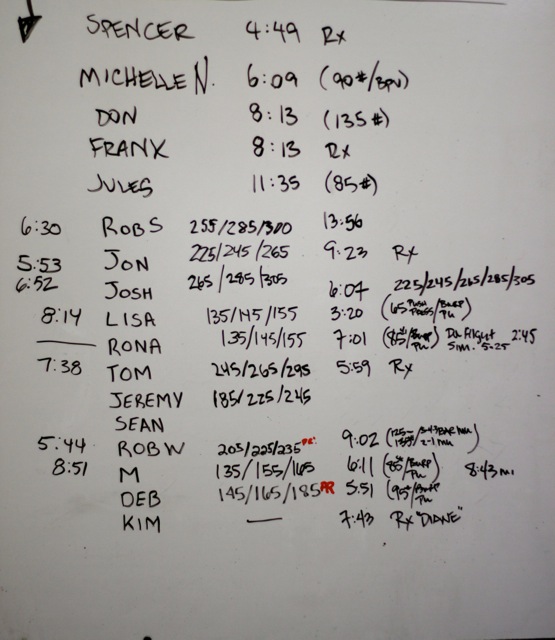 SPENCER 4:49 Rx
MICHELLE N. 6:09 (90#/BPU)
DON 8:13 (135#)
FRANK 8:13 Rx
JULES 11:35 (85#)
6:30 ROB S 255/285/300 13:56
5:53 JON 225/245/265 9:23 Rx
6:52 JOSH 265/285/305 6:07 225/245/265/285/305
8:14 LISA 135/145/155 3:20 (65 PUSH PRESS/BURP PU)
— RONA 135/145/155 7:01 (85#/BURP PU) Flight Sim. 5-25 2:45
7:38 TOM 245/265/295 5:59 Rx
JEREMY 185/225/245
SEAN
5:44 ROB W 205/225/235 PR 9:02
8:51 M 135/155/165 6:11 (85#/BURP PU) 8:43 mi
DEB 145/165/185 PR 5:51 (95#/BURP PU)
KIM — 7:43 Rx "DIANE"